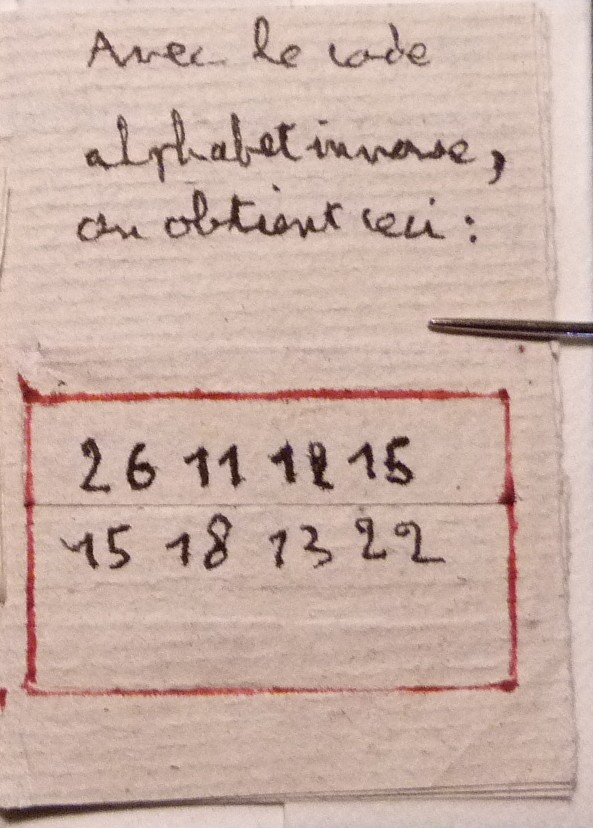 Avec le code
alphabet inverse,
on obtient ceci :
26 11 12 15
15 18 13 22